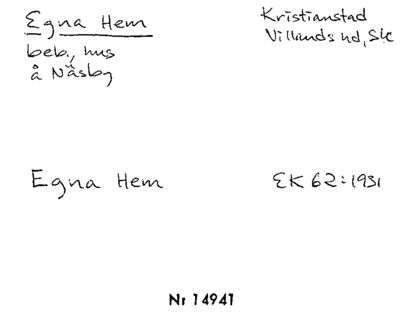 Egna Hem
beb., hus
å Näsby
Kristianstad
Villands hd, Sk
Egna Hem
EK 62:1931
Nr 14941